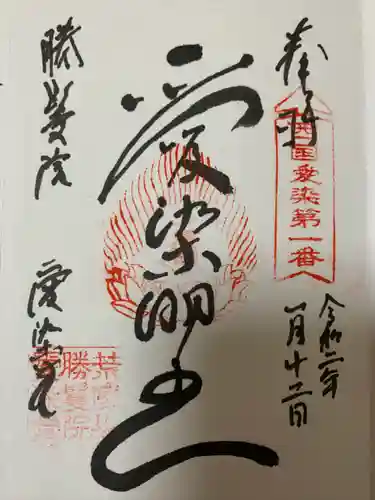 奉拝
西国愛染第一番
令和二年
一月十二日
愛染明王
勝鬘院
愛染堂
荒陵山
勝鬘院